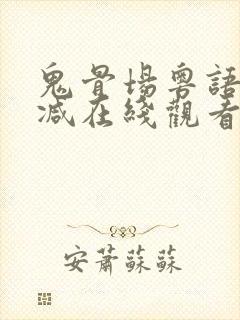 鬼骨場粵語
减在綫觀看
安蕭蘇蘇